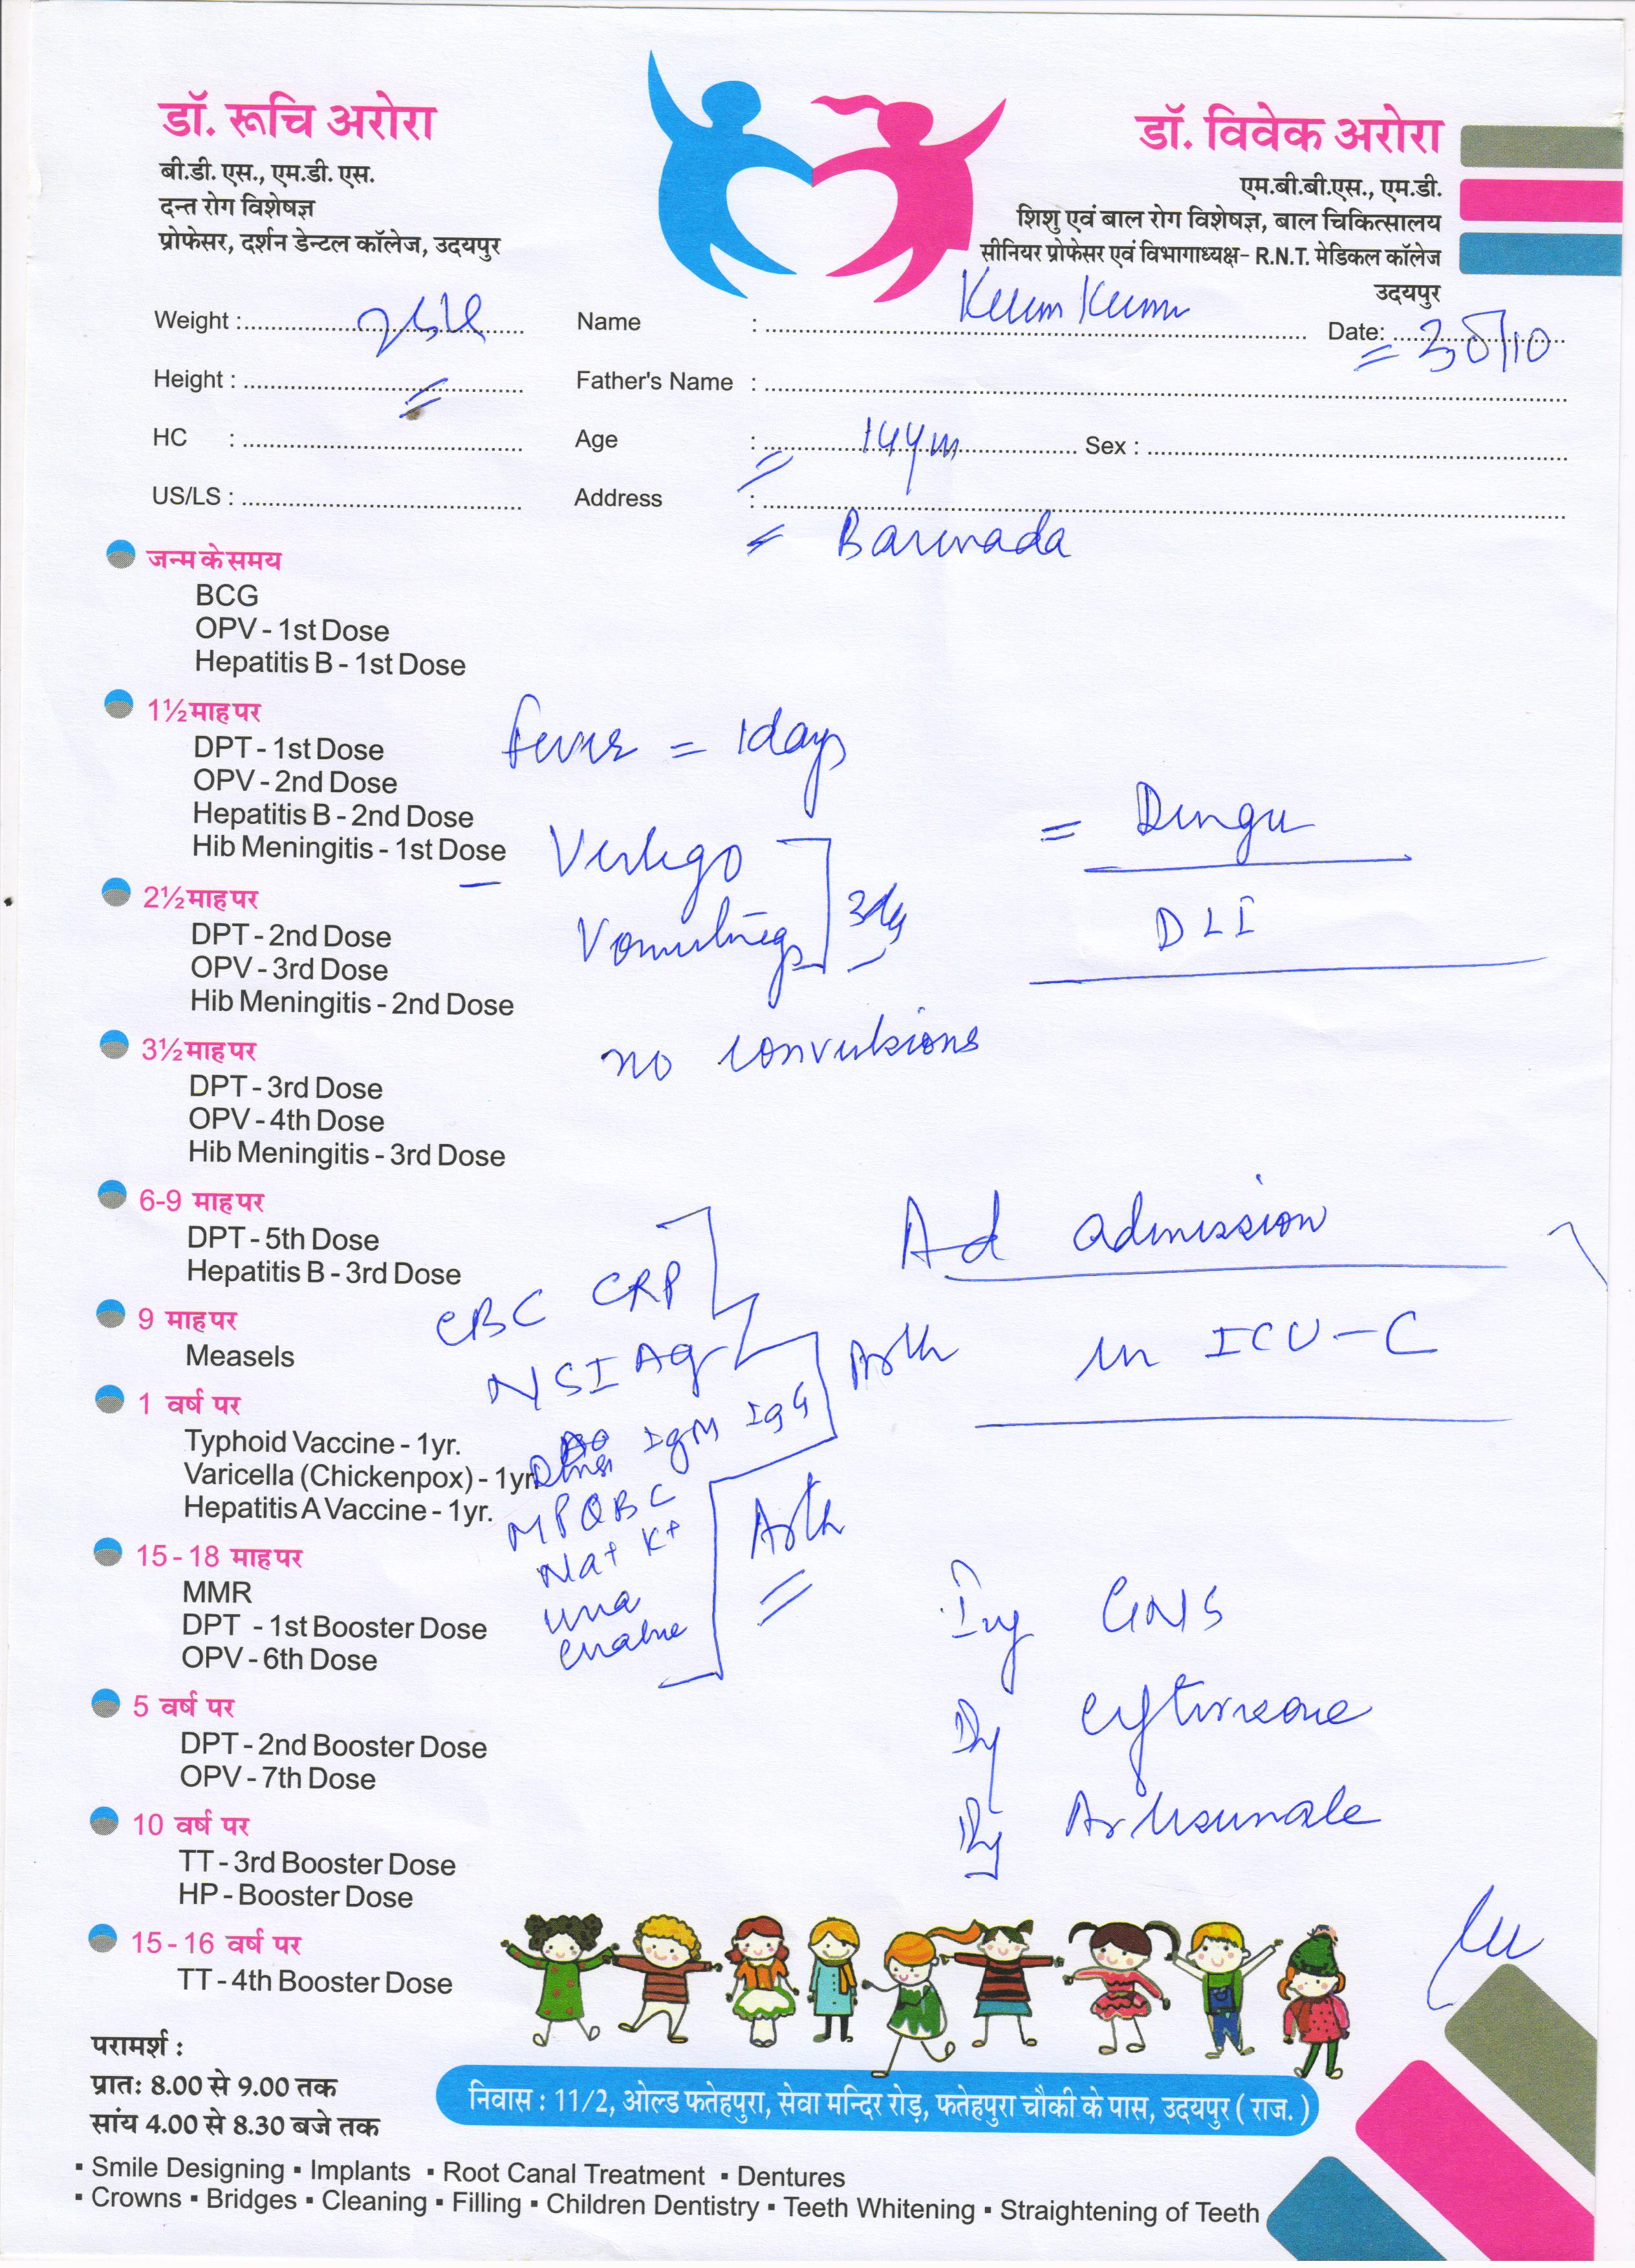 डॉ. रूचि अरोरा
बी.डी. एस., एम.डी. एस.
दन्त रोग विशेषज्ञ
प्रोफेसर, दर्शन डेन्टल कॉलेज, उदयपुर
डॉ. विवेक अरोरा
एम.बी.बी.एस., एम.डी.
शिशु एवं बाल रोग विशेषज्ञ, बाल चिकित्सालय
सीनियर प्रोफेसर एवं विभागाध्यक्ष- R.N.T. मेडिकल कॉलेज
उदयपुर
Weight :
Name : Kum Kum
Date: = 30/10
Height : =
Father's Name :
HC :
Age : 14 yrs
Sex :
US/LS :
Address :
= Barwada
जन्म के समय
BCG
OPV - 1st Dose
Hepatitis B - 1st Dose
1½ माह पर
DPT - 1st Dose
OPV - 2nd Dose
Hepatitis B - 2nd Dose
Hib Meningitis - 1st Dose
2½ माह पर
DPT - 2nd Dose
OPV - 3rd Dose
Hib Meningitis - 2nd Dose
3½ माह पर
DPT - 3rd Dose
OPV - 4th Dose
Hib Meningitis - 3rd Dose
6-9 माह पर
DPT - 5th Dose
Hepatitis B - 3rd Dose
9 माह पर
Measels
1 वर्ष पर
Typhoid Vaccine - 1yr.
Varicella (Chickenpox) - 1yr.
Hepatitis A Vaccine - 1yr.
15 - 18 माह पर
MMR
DPT - 1st Booster Dose
OPV - 6th Dose
5 वर्ष पर
DPT - 2nd Booster Dose
OPV - 7th Dose
10 वर्ष पर
TT - 3rd Booster Dose
HP - Booster Dose
15 - 16 वर्ष पर
TT - 4th Booster Dose
fever = 1days
- Vertigo
Vomitings
3dys
no convulsions
= Dengu
DLI
Ad admission
in ICU-C
CBC CRP
NSIAg
IgM IgG
MPQBC
Na+ K+
urea
Inj GNS
Inj Ceftrixone
Inj Artisunate
परामर्श :
प्रातः 8.00 से 9.00 तक
सांय 4.00 से 8.30 बजे तक
निवास : 11/2, ओल्ड फतेहपुरा, सेवा मन्दिर रोड़, फतेहपुरा चौकी के पास, उदयपुर ( राज. )
▪ Smile Designing ▪ Implants ▪ Root Canal Treatment ▪ Dentures
▪ Crowns ▪ Bridges ▪ Cleaning ▪ Filling ▪ Children Dentistry ▪ Teeth Whitening ▪ Straightening of Teeth